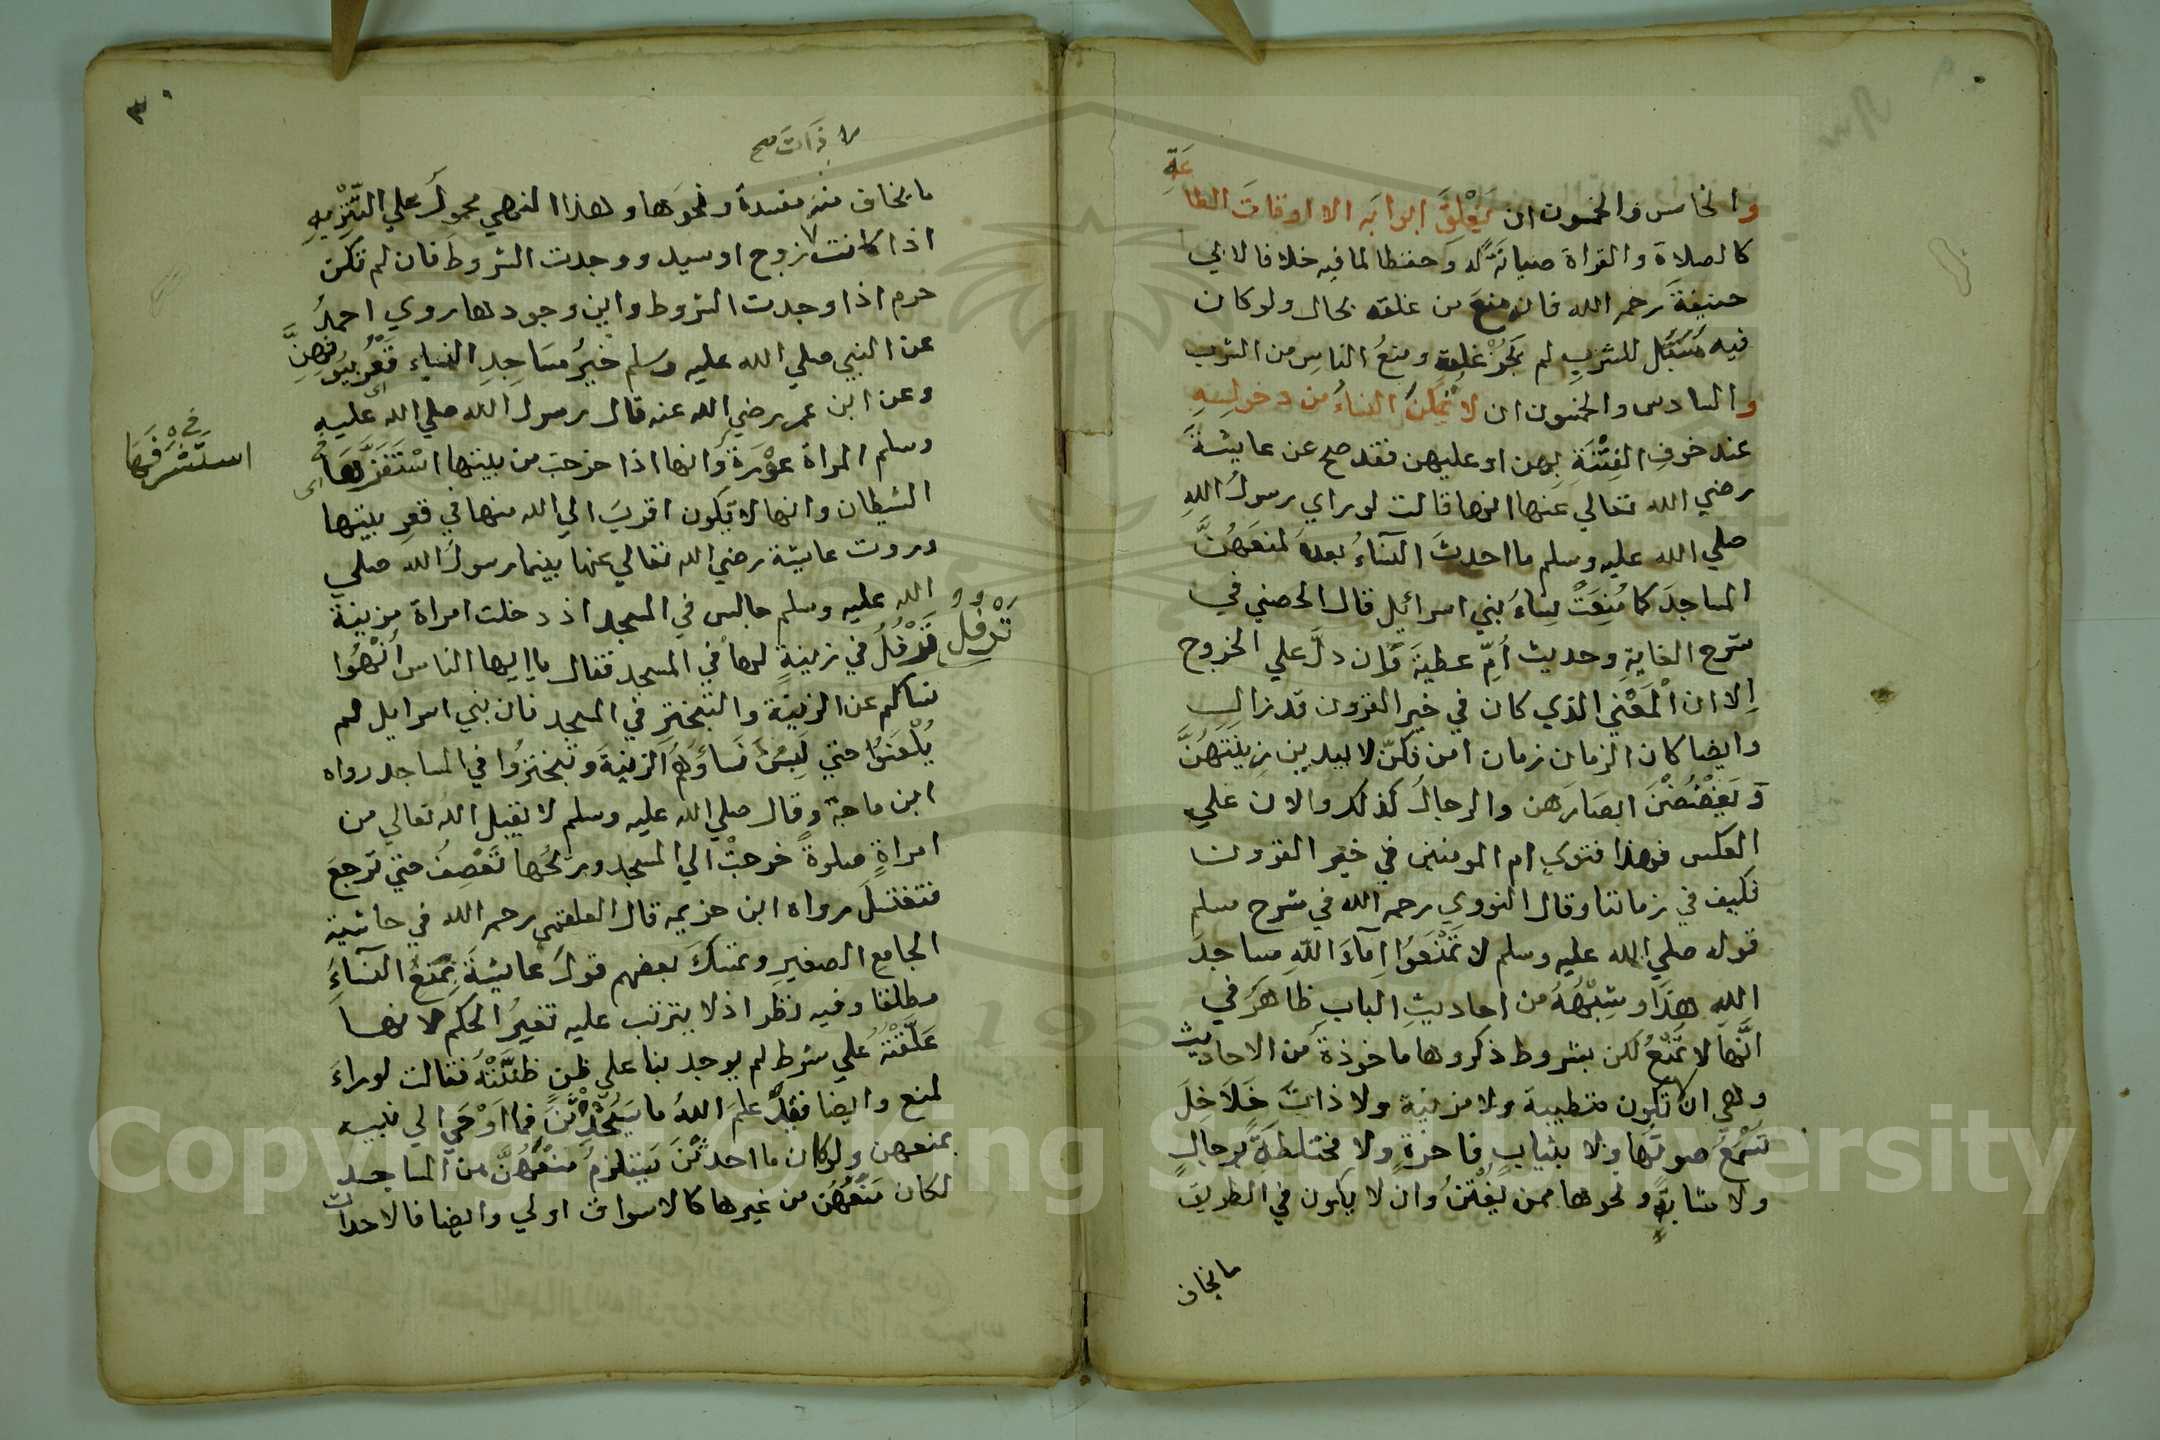 والخامس والخمسون ان يُغْلَقَ ابوابَه الا اوقات الطاعَةِ
كالصلاة والقراة صيانةً له وحفظا لما فيه خلافا لابي
حنيفةَ رحمه الله فانه منعَ من غلقه بحال ولو كان
فيه مُسَبَّل للشربِ لم يَجُزْ غلقه ومنعُ الناسِ من الشرب
والسادس والخمسون ان لا تُمَكَّنَ النساءُ من دخولِهِ
عند خوفِ الفِتْنَةِ بهن او عليهن فقد صح عن عايشةَ
رضي الله تعالي عنها انها قالت لو راي رسولُ اللهِ
صلي الله عليه وسلم ما احدثَ النساءُ بعدَه لمنعَهُنَّ
المساجدَ كما مُنِعَتْ نِساءُ بني اسرائيل قال الحصني في
شرح الغايةِ وحديث أمِّ عطيةَ وإن دلَّ علي الخروج
إلا ان الْمَعْني الذي كان في خير القرون قد زال
وايضا كان الزمان زمان امن فكنّ لا يبدين زِينَتَهُنَّ
وَيَغْضُضْنَ ابصارَهن والرجالُ كذلك والان علي
العكس فهذا فتوي ام المومنين في خير القرون
فكيف في زماننا وقال النووي رحمه الله في شرح مسلم
قوله صلي الله عليه وسلم لا تَمْنَعُوا إمآءَ اللهِ مساجدَ
اللهِ هذا وشِبْهُهُ من احاديثِ البابِ ظاهرٌ في
أنَّها لا تُمْنَعُ لكن بشروط ذكروها ماخوذةً من الاحاديث
وهي ان لا تكون متطيبة ولا مزينة ولا ذاتَ خَلَاخِلَ
تُسْمَعُ صوتُها ولا بثيابٍ فاخرةٍ ولا مختلطةً برجالٍ
ولا شابةٍ ونحوها ممن يُفْتَنُ وان لا يكون في الطريق
ما يخاف
٣٠
لا ذات صح
ما يخاف منه مفسدة ونحوها وهذا النهي محمولٌ علي التنزيهِ
اذا كانت زوج او سيد ووجدت الشروط فان لم تكن
حرم اذا وجدت الشروط واين وجودها روي احمدُ
عن النبي صلي الله عليه وسلم خيرُ مساجدِ النساء قَعْرُ بيُوتِهِنَّ
وعن ابن عمر رضي الله عنه قال رسول الله صلي الله عليه
وسلم المراة عَوْرَةٌ وانها اذا خرجت من بيتها اسْتَفَزَّهَا
في ه
استَشْرَفَهَا
الشيطان وانها لا تكون اقربَ الي الله منها في قعرِ بيتها
وروت عايشة رضي الله تعالي عنها بينما رسولُ الله صلي
الله عليه وسلم جالس في المسجد اذ دخلت امراة مزينة
تَرْفُلُ في زينةٍ لها في المسجد فقال يا ايها الناس أنْهُوا
تَرْفُلُ
نساكم عن الزينة والتبخترِ في المسجد فان بني اسرايل لم
يُلْعَنوُا حتي لَبِسَ نسَاؤُهم الزينةَ وتبخترُوا في المساجد رواه
ابن ماجة وقال صلي الله عليه وسلم لا يقبل الله تعالي من
امراةٍ صلوةً خرجتْ الي المسجد وريحُها تَعْصِفُ حتي ترجعَ
فتغتسلَ رواه ابن خزيمه قال العلقمي رحمه الله في حاشية
الجامع الصغيرِ وتمسكَ بعضهم قولَ عايشةَ بِمَنْعِ النسآءِ
مطلقا وفيه نظر اذ لا يترتب عليه تغيرُ الحكم لانها
عَلَّقَتْهُ علي شرط لم يوجد بنا علي ظنٍ ظنَّتْهُ فقالت لو راءَ
لمنع وايضا فقد علمَ اللهُ ما سَيُحْدِثْنَ فما اوْحَي الي نبيه
بمنعهن ولو كان ما احدثْنَ يستلزمُ منعَهُنَّ من المساجد
لكان مَنْعُهُن من غيرها كالاسواق اولي وايضا فالاحداث
Copyright © King Saud University